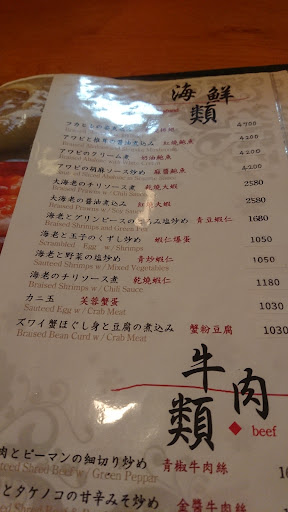 海鮮類
4700
アワビと椎茸の醤油煮込み 紅燒鮑魚 4200
アワビのクリーム煮 奶油鮑魚 4200
アワビの胡麻ソース炒め 麻醬鮑魚 4200
大海老のチリソース煮 乾燒大蝦 2580
Braised Prawns w/ Chili Sauce
大海老の醤油煮込み 紅燒大蝦 2580
Braised Prawns w/ Soy Sauce
海老とグリンピースのうま塩炒め 青豆蝦仁 1680
Braised Shrimps and Green Pea
海老と玉子のくずし炒め 蝦仁爆蛋 1050
Scrambled Egg w/ Shrimps
海老と野菜の塩炒め 青炒蝦仁 1050
Sauteed Shrimps w/ Mixed Vegetables
海老のチリソース煮 乾燒蝦仁 1180
Braised Shrimps w/ Chili Sauce
カニ玉 芙蓉蟹蛋 1030
Sauteed Egg w/ Crab Meat
ズワイ蟹ほぐし身と豆腐の煮込み 蟹粉豆腐 1030
Braised Bean Curd w/ Crab Meat
牛肉類
beef
肉とピーマンの細切り炒め 青椒牛肉絲
Shred Beef w/ Green Pepper
とタケノコの甘辛みそ炒め 金醬牛肉絲